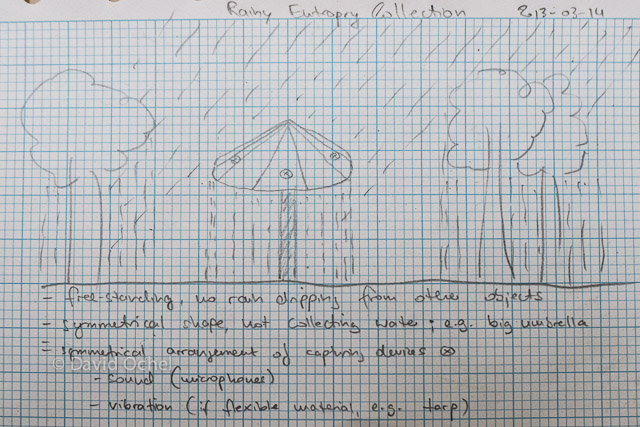 Rainy Entropy Collection 213-03-14
- free-standing, no rain dripping from other objects
- symmetrical shape, not collecting water; e.g. big umbrella
- symmetrical arrangement of capturing devices ⊗
© David Ochel
- sound (microphones)
- vibration (if flexible material, e.g. tarp)